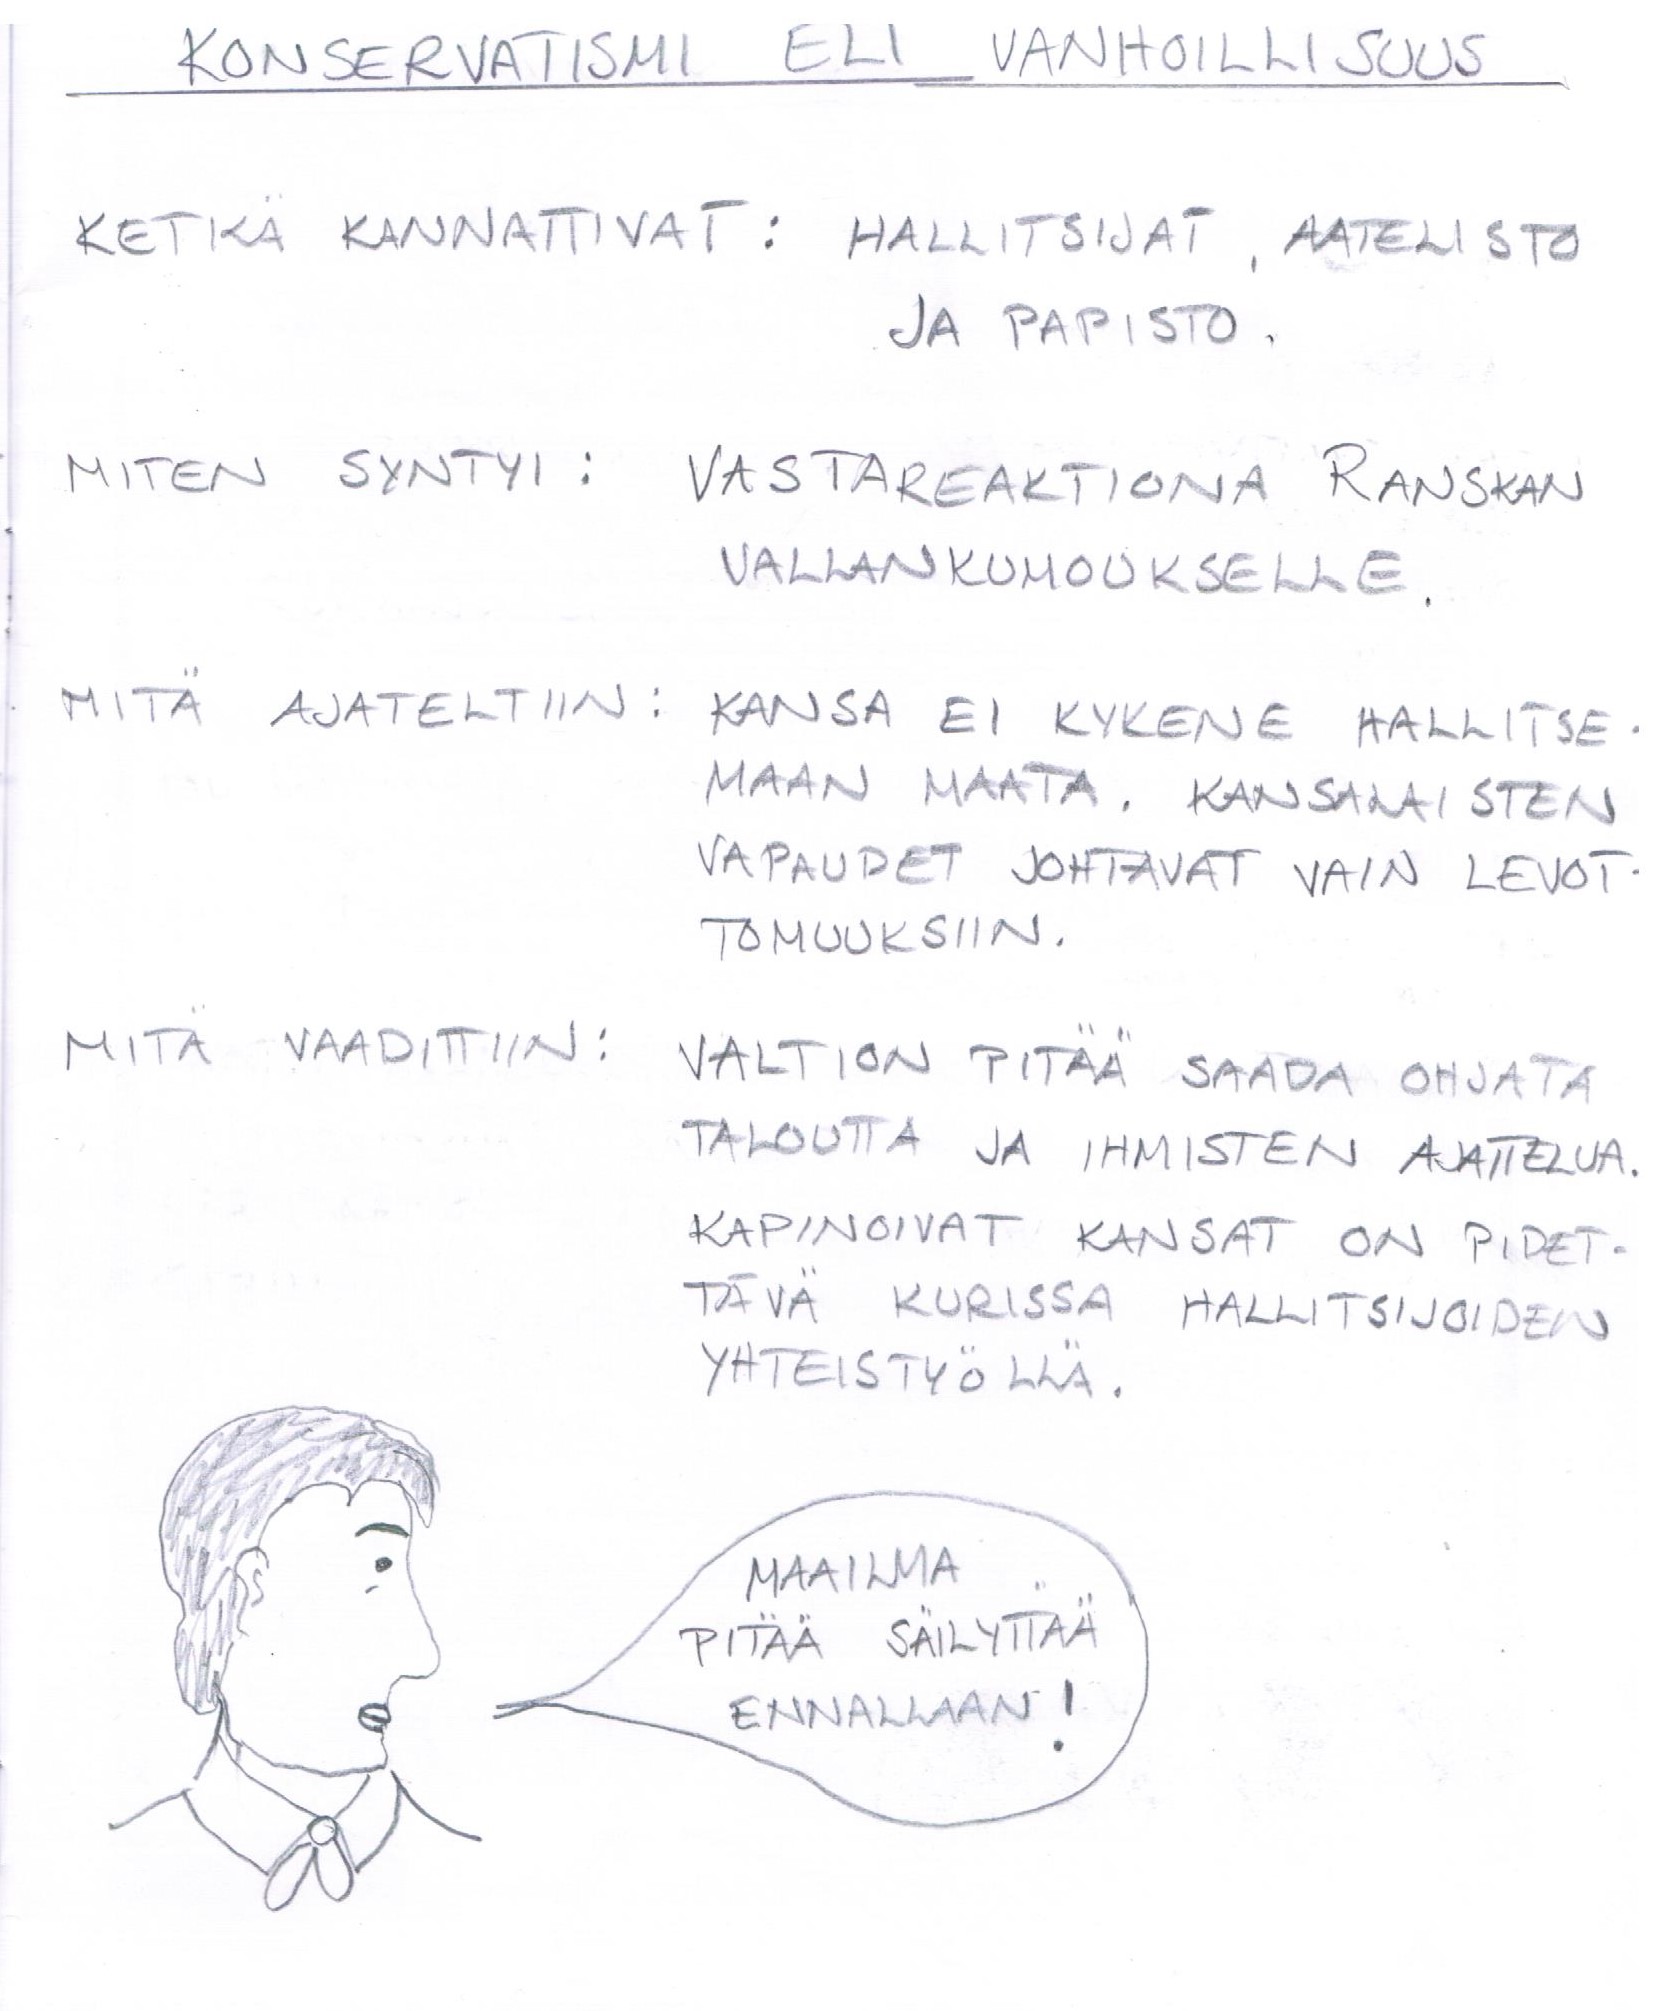 KONSERVATISMI ELI VANHOILLISUUS
KETKÄ KANNATTIVAT: HALLITSIJAT, AATELISTO
JA PAPISTO.
MITEN SYNTYI: VASTAREAKTIONA RANSKAN
VALLANKUMOUKSELLE.
MITÄ AJATELTIIN: KANSA EI KYKENE HALLITSE-
MAAN MAATA. KANSALAISTEN
VAPAUDET JOHTAVAT VAIN LEVOT-
TOMUUKSIIN.
MITÄ VAADITTIIN: VALTION PITÄÄ SAADA OHJATA
TALOUTTA JA IHMISTEN AJATTELUA.
KAPINOIVAT KANSAT ON PIDET-
TÄVÄ KURISSA HALLITSIJOIDEN
YHTEISTYÖLLÄ.
MAAILMA
PITÄÄ SÄILYTTÄÄ
ENNALLAAN!